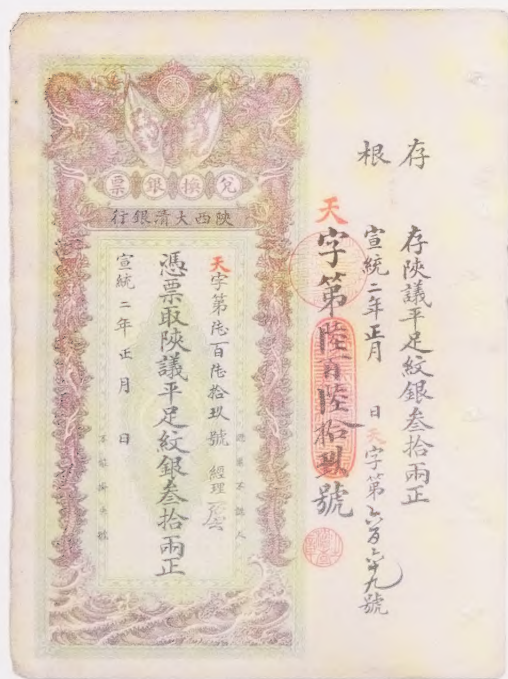 存根
存陝議平足紋銀叁拾兩正
宣統二年正月　日天字第六百六十九號
天字第陸百陸拾玖號
兌換銀票
陝西大清銀行
天字第陸百陸拾玖號　經理
憑票取陝議平足紋銀叁拾兩正
宣統二年正月　日